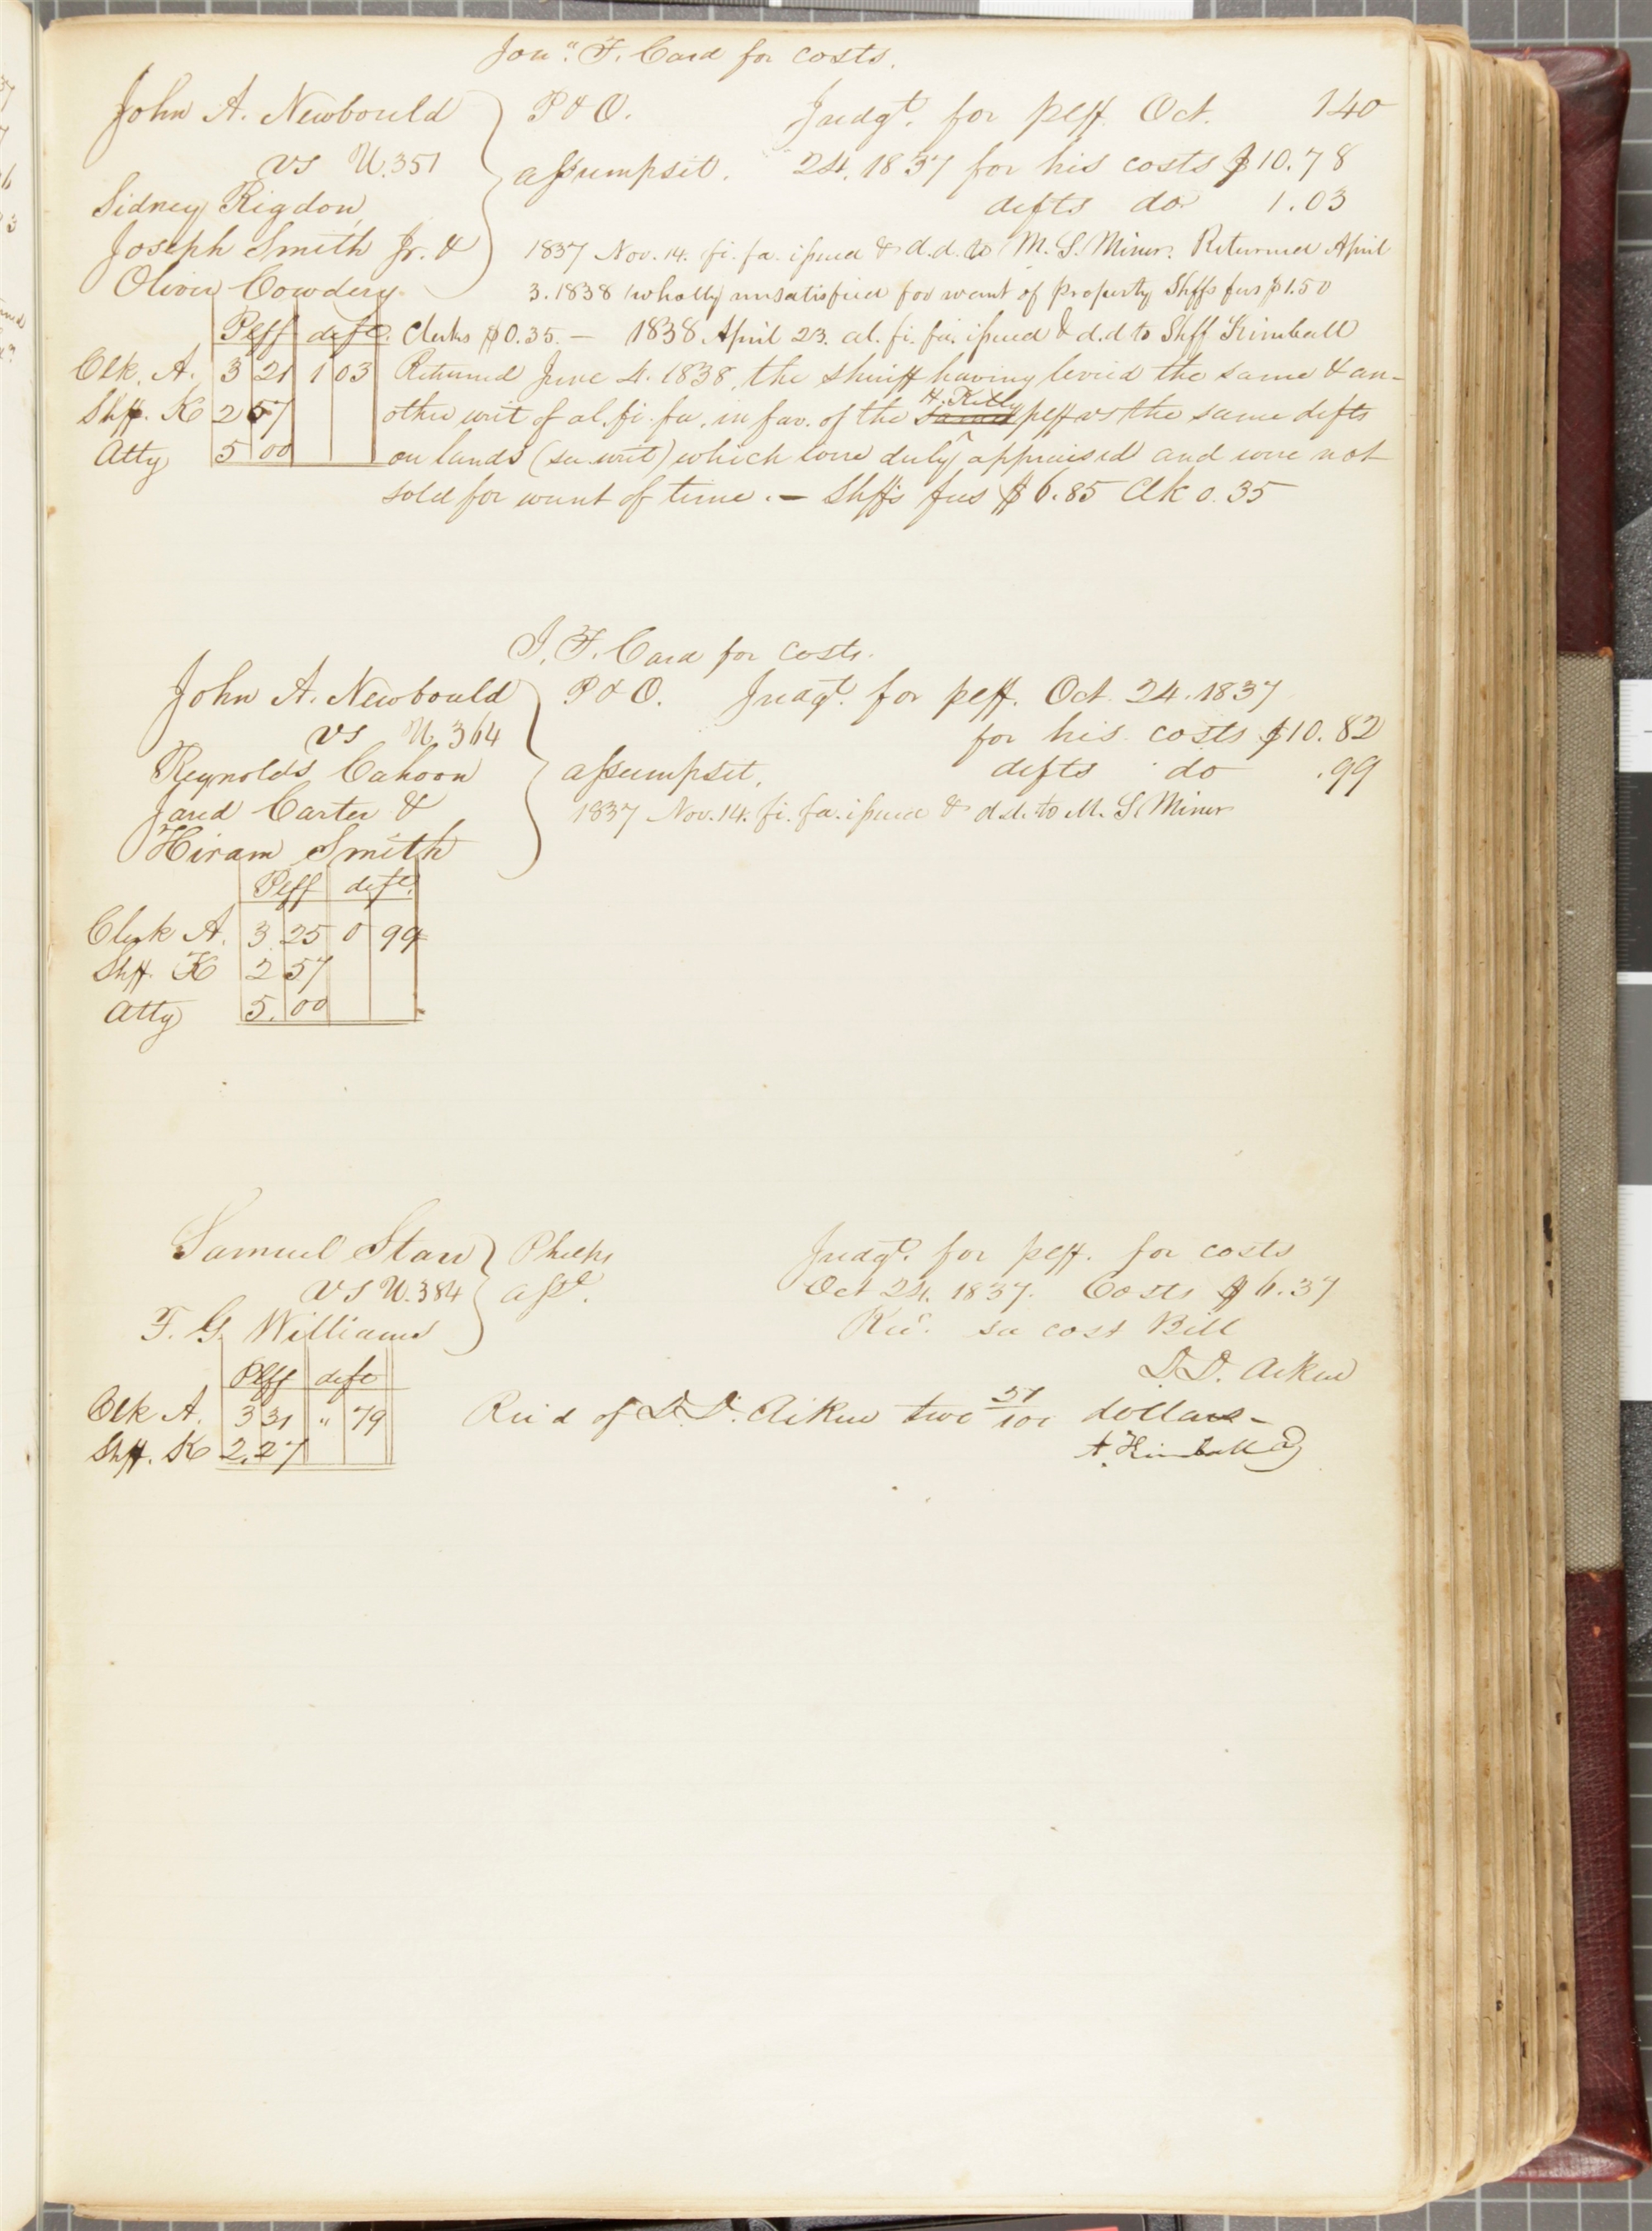 Jona. F. Card for costs.
John A. Newbould P & O. Judgt. for plff. Oct. 140
vs U.351 assumpsit. 24. 1837 for his costs $10.78
Sidney Rigdon, defts do 1.03
Joseph Smith Jr. & 1837 Nov. 14. fi. fa. issued & d.d. to M. S. Miner. Returned April
Oliver Cowdery 3. 1838 wholly unsatisfied for want of property Shffs fees $1.50
Plff deft. Clerks $0.35. — 1838 April 23. al. fi. fa. issued & d.d to Shff Kimball
Clk. A. 3 21 1 03 Returned June 4. 1838, the sheriff having levied the same & an-
H. Kelly
Shff. K 2 57 other writ of al. fi. fa. in fav. of the same plff vs the same defts
Atty 5 00 on lands (see writ) which were duly appraised and were not
sold for want of time. — Shffs fees $6.85 Clk 0.35
J. F. Card for costs.
John A. Newbould P & O. Judgt. for plff. Oct. 24. 1837
vs U 364 for his costs $10.82
Reynolds Cahoon assumpsit. defts do .99
Jared Carter & 1837 Nov. 14. fi. fa. issued & d.d. to M. S. Miner
Hiram Smith
Plff deft.
Clerk A. 3 25 0 99
Shff. K 2 57
Atty 5.00
Samuel Starr Phelps Judgt. for plff. for costs
vs U.384 asst. Oct 24. 1837. Costs $6.37
F. G. Williams Recd. see cost Bill
Plff deft D.D. Aiken
Clk A. 3 31 " 79 Rec'd of D.D. Aiken two 57/100 dollars-
Shff. K 2.27 A. Kimball